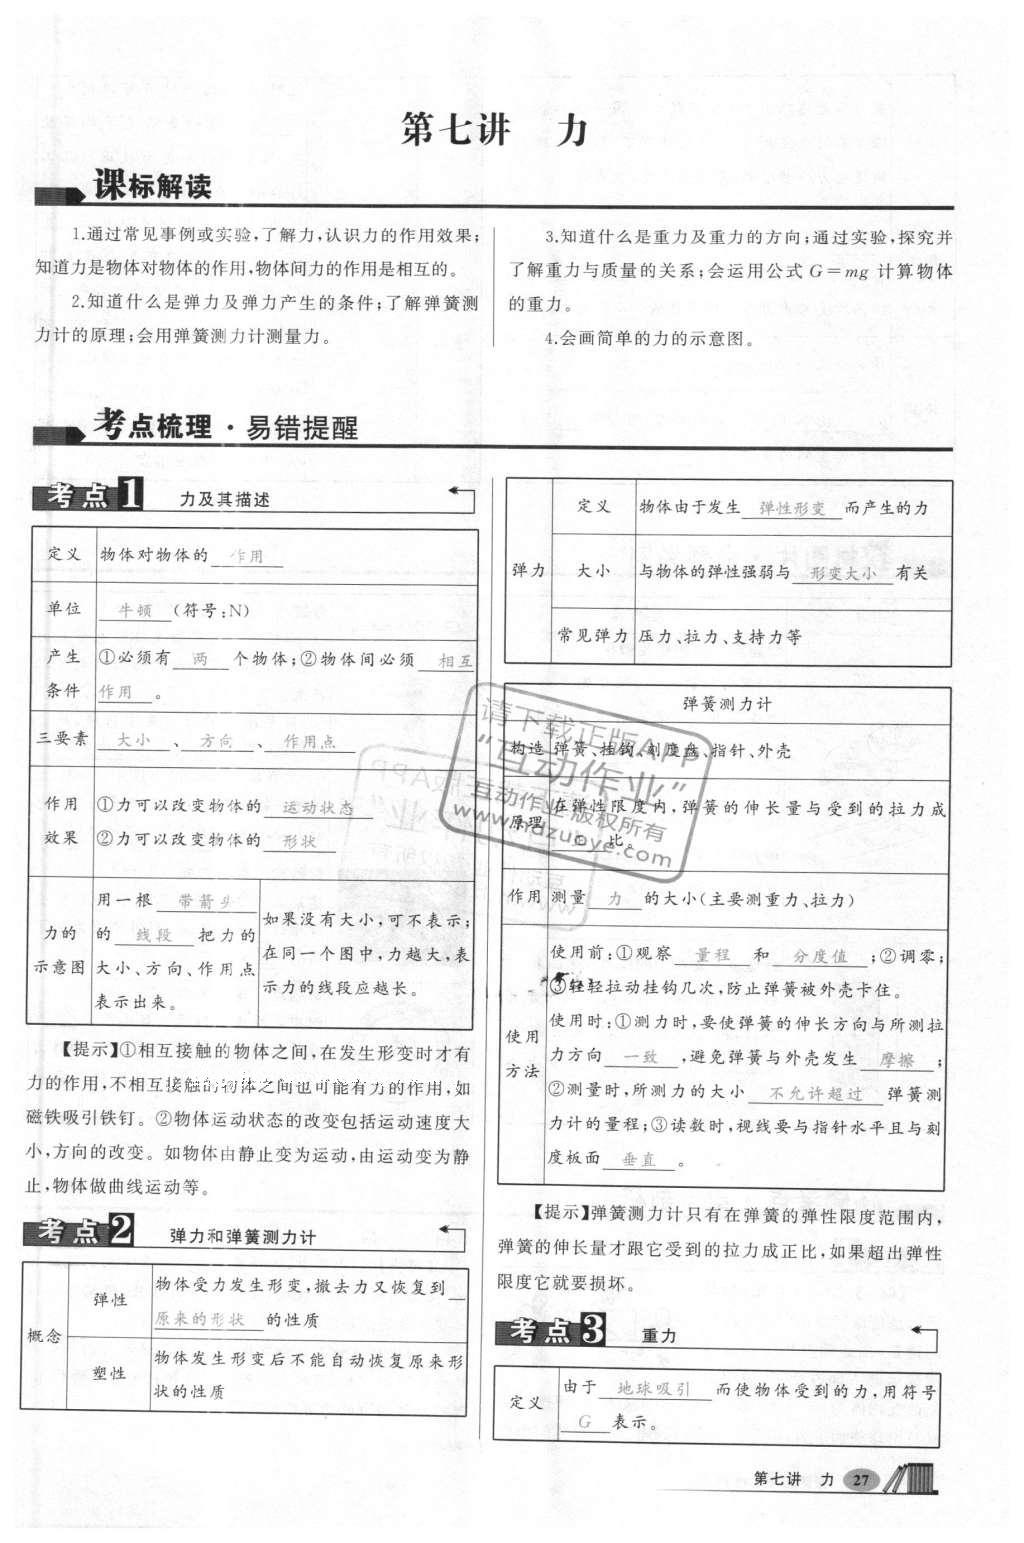 第七讲 力
课标解读
1.通过常见事例或实验,了解力,认识力的作用效果;
知道力是物体对物体的作用,物体间力的作用是相互的。
2.知道什么是弹力及弹力产生的条件;了解弹簧测
力计的原理;会用弹簧测力计测量力。
3.知道什么是重力及重力的方向;通过实验,探究并
了解重力与质量的关系;会运用公式 G=mg 计算物体
的重力。
4.会画简单的力的示意图。
考点梳理·易错提醒
考点1 力及其描述
定义 物体对物体的 作用
单位 牛顿 (符号:N)
产生 ①必须有 两 个物体;②物体间必须 相互
条件 作用 。
三要素 大小 、 方向 、 作用点
作用 ①力可以改变物体的 运动状态
效果 ②力可以改变物体的 形状
力的
示意图
用一根 带箭头
的 线段 把力的
大小、方向、作用点
表示出来。
如果没有大小,可不表示;
在同一个图中,力越大,表
示力的线段应越长。
【提示】①相互接触的物体之间,在发生形变时才有
力的作用,不相互接触的物体之间也可能有力的作用,如
磁铁吸引铁钉。②物体运动状态的改变包括运动速度大
小,方向的改变。如物体由静止变为运动,由运动变为静
止,物体做曲线运动等。
考点2 弹力和弹簧测力计
概念
弹性
物体受力发生形变,撤去力又恢复到
原来的形状 的性质
塑性
物体发生形变后不能自动恢复原来形
状的性质
弹力
定义 物体由于发生 弹性形变 而产生的力
大小 与物体的弹性强弱与 形变大小 有关
常见弹力 压力、拉力、支持力等
弹簧测力计
构造 弹簧、挂钩、刻度盘、指针、外壳
原理
在弹性限度内,弹簧的伸长量与受到的拉力成
比。
作用 测量 力 的大小(主要测重力、拉力)
使用
方法
使用前:①观察 量程 和 分度值 ;②调零;
③轻轻拉动挂钩几次,防止弹簧被外壳卡住。
使用时:①测力时,要使弹簧的伸长方向与所测拉
力方向 一致 ,避免弹簧与外壳发生 摩擦 ;
②测量时,所测力的大小 不允许超过 弹簧测
力计的量程;③读数时,视线要与指针水平且与刻
度板面 垂直 。
【提示】弹簧测力计只有在弹簧的弹性限度范围内,
弹簧的伸长量才跟它受到的拉力成正比,如果超出弹性
限度它就要损坏。
考点3 重力
定义
由于 地球吸引 而使物体受到的力,用符号
G 表示。
第七讲 力 27
请下载正版APP
“互动作业”
互动作业 版权所有
www.hdzuoye.com